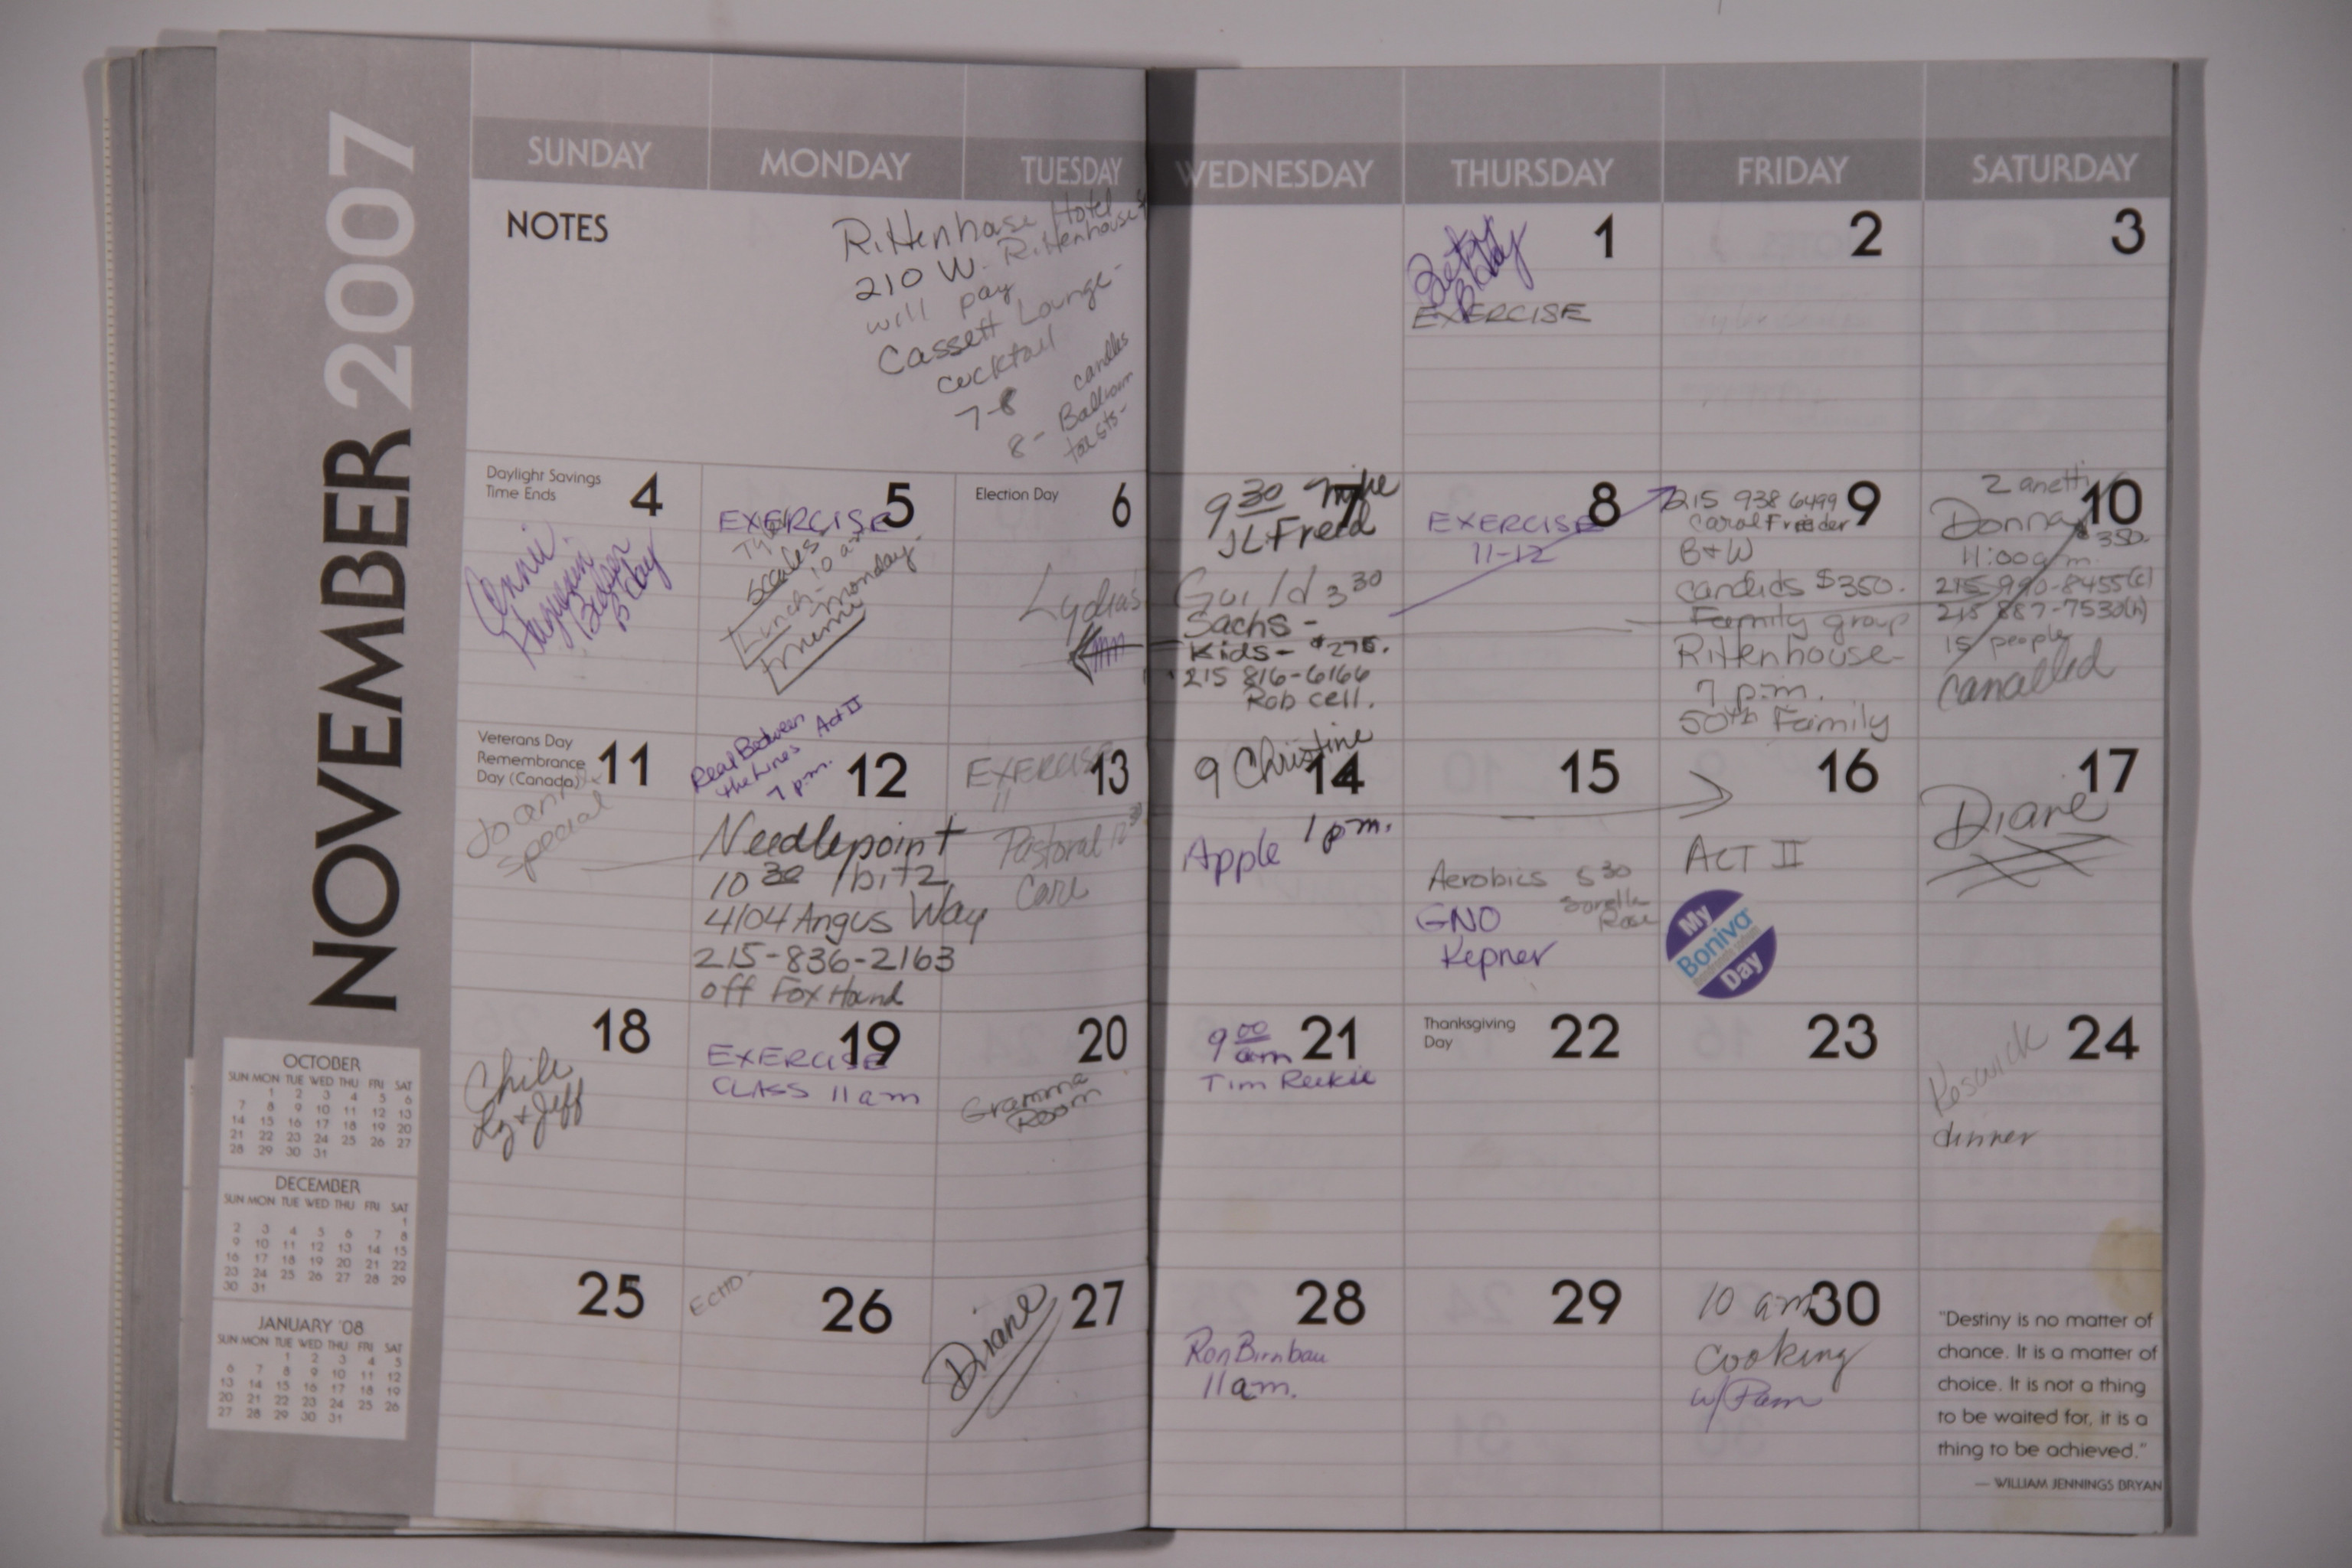 NOVEMBER 2007
SUNDAY MONDAY TUESDAY WEDNESDAY THURSDAY FRIDAY SATURDAY
NOTES
Rittenhouse Hotel
210 W. Rittenhouse
will pay
Cassett Lounge-
cocktail
7-8
candles
8 - Ballroom
toasts-
1
Betsy
Bday
EXERCISE
2
3
Daylight Savings
Time Ends
4
B'day
5
EXERCISE
Tyler
10 am
Lunch - Monday
Election Day
6
Lydias
7
9 30
JL Freed
Guild 3 30
Sachs -
Kids - $275.
215 816-6166
Rob cell.
8
EXERCISE
11-12
9
215 938 6499
Carol Frieder
B+W
candids $350.
Family group
Rittenhouse-
7 p.m.
50th Family
10
Zanetti
Donna
$350.
11:00 a.m.
215-990-8455(c)
215 887-7530(h)
15 people
cancelled
Veterans Day
Remembrance
Day (Canada)
11
Joann
special
12
Read Between
the Lines Act II
7 p.m.
Needlepoint
10 30
4104 Angus Way
215-836-2163
off Fox Hound
13
EXERCISE
11
Pastoral
Care
14
9 Christine
Apple 1 p.m.
15
Aerobics 5 30
GNO
Kepner
16
ACT II
My
Boniva
Day
17
Diane
18
Chili
Ly & Jeff
19
EXERCISE
CLASS 11 am
20
Gramma
Room
21
9 00
am
Tim Reekie
Thanksgiving
Day
22
23
24
Keswick
dinner
25
26
ECHO-
27
Diane
28
Ron Birnbau
11 am.
29
30
10 am
Cooking
w/ Pam
"Destiny is no matter of
chance. It is a matter of
choice. It is not a thing
to be waited for, it is a
thing to be achieved."
— WILLIAM JENNINGS BRYAN
OCTOBER
SUN MON TUE WED THU FRI SAT
1 2 3 4 5 6
7 8 9 10 11 12 13
14 15 16 17 18 19 20
21 22 23 24 25 26 27
28 29 30 31
DECEMBER
SUN MON TUE WED THU FRI SAT
1
2 3 4 5 6 7 8
9 10 11 12 13 14 15
16 17 18 19 20 21 22
23 24 25 26 27 28 29
30 31
JANUARY '08
SUN MON TUE WED THU FRI SAT
1 2 3 4 5
6 7 8 9 10 11 12
13 14 15 16 17 18 19
20 21 22 23 24 25 26
27 28 29 30 31